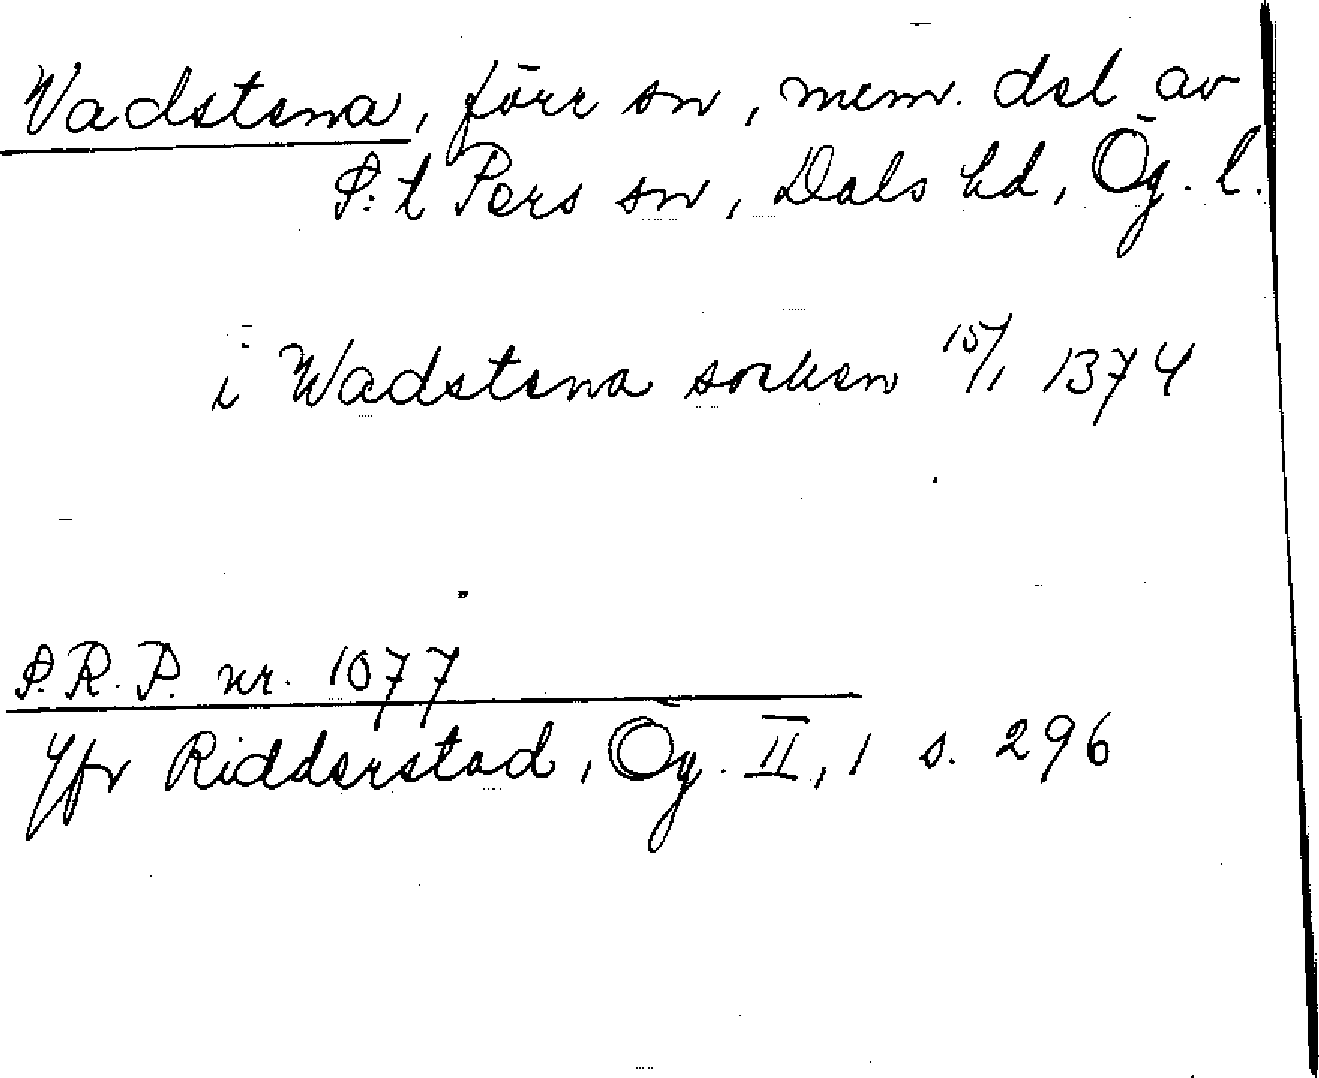 Vadstena, förr sn, num. del av
S:t Pers sn, Dals hd, Ög. l.
i Wadstena socken 15/1 1374
S.R.P. nr. 1077
Jfr Ridderstad, Ög. II, 1 s. 296